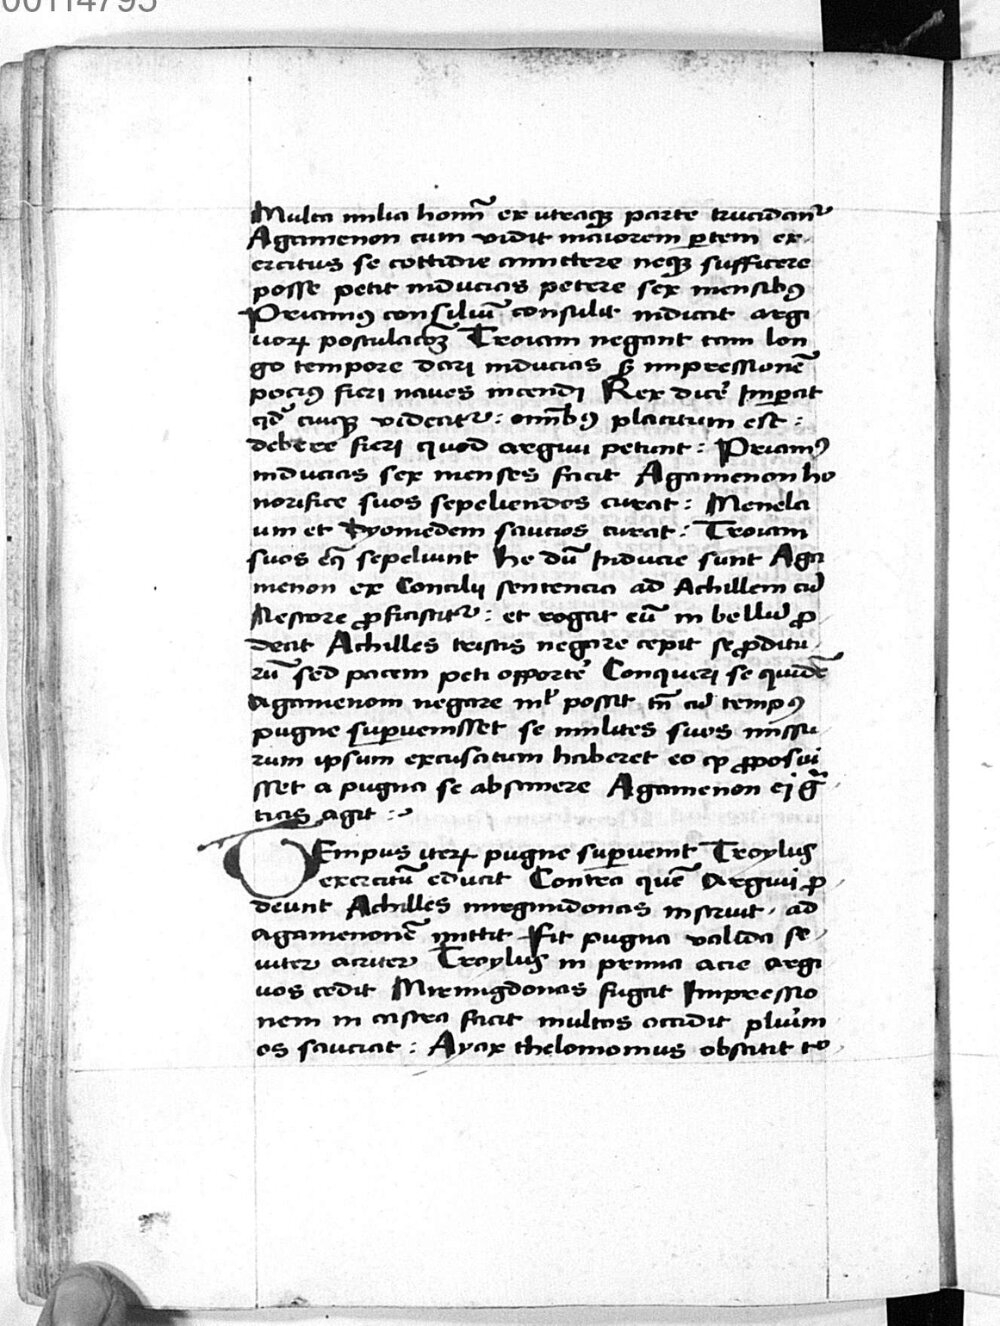 00114795
Multa milia hom̅ ex utraqꝫ parte trucidant᷑
Agamenon cum vidit maiorem ꝑtem ex
ercitus se cottidie amittere neqꝫ sufficere
posse petit inducias petere sex mensibꝯ
Priamꝯ consiliu̅ consulit indicat argi
uorꝝ postulac̅oꝫ Troiam negant tam lon
go tempore dari inducias sꝫ impressione̅
pociꝯ fieri naues incendi Rex dice̅ Imꝑat
qd̅ cuiqꝫ videatr᷑ : om̅ibꝯ placitum est :
debere fieri quod argiui petunt : Priamꝯ
inducias sex menses facit Agamenon ho
norifice suos sepeliendos curat : Menela
um et dyomedem saucios curat : Troiam
suos eq̅ sepeliunt He du̅ Inducie sunt Aga
menon ex Concilij sentencia ad Achillem cu̅
Nestore ꝓficiscit᷑ : et rogat eu̅ in bellu̅ ꝓ
deat Achilles tristis negare cepit se ꝓditu
ru̅ sed pacem peti opporte̅ Conqueri se quide̅
Agamenom negare nl̅ possit tn̅ cu̅ tempꝯ
pugne suꝑuenisset se milites suos missu
rum ipsum excusatum haberet eo ꝙ ꝓposui
sset a pugna se abstinere Agamenon ei gr̅a
tias agit :~
TEmpus iterꝝ pugne suꝑuenit Troylus
exercitu̅ educit Contra que̅ Argiui ꝓ
deunt Achilles mirginidonas instruit ad
agamenone̅ mittit Fit pugna valida se
uiter acriter Troylus in prima acie argi
uos cedit Mirmigdonas fugat Impressio
nem in castra facit multos occidit plurim
os sauciat : Ayax thelomonius obstitit to